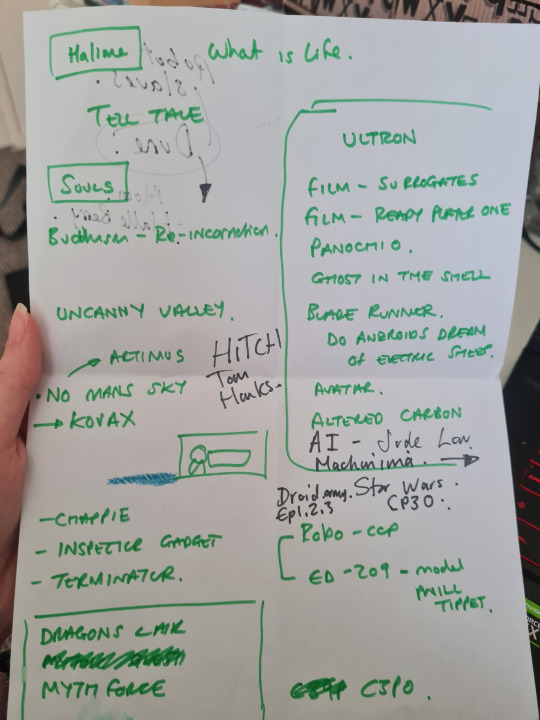 Halime
What is Life.
TELL TALE
SOULS
Buddhism - Re-incarnation.
UNCANNY VALLEY.
ARTIMUS
• NO MANS SKY
→ KOVAX
HITCH
Tom
Hanks.
- CHAPPIE
- INSPECTOR GADGET
- TERMINATOR.
DRAGONS LAIR
MYTH FORCE
ULTRON
FILM - SURROGATES
FILM - READY PLAYER ONE
PANOCHIO.
GHOST IN THE SHELL
BLADE RUNNER.
DO ANDROIDS DREAM
OF ELECTRIC SHEEP.
AVATAR.
ALTERED CARBON
AI - Jude Law
Machinima.
Droid army. Star Wars.
Ep1.2.3 CP30.
Robo - cop
ED - 209 - model
TIPPET.
C3PO.